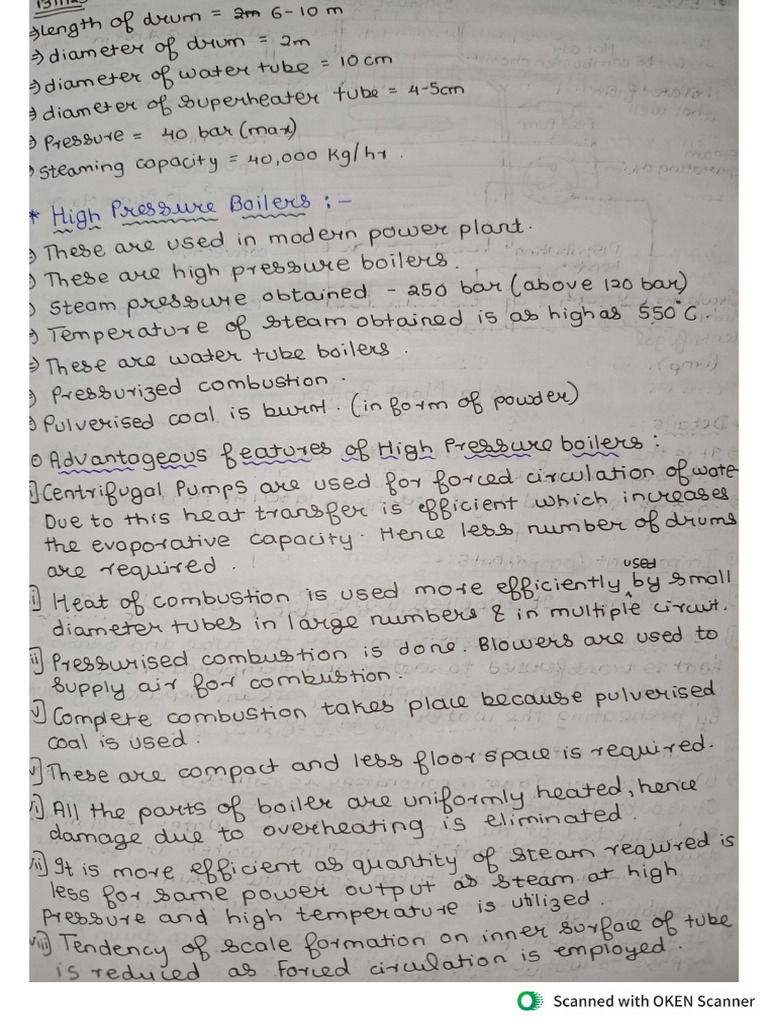 ⇒ Length of drum = 2m 6-10 m
⇒ diameter of drum = 2m
⇒ diameter of water tube = 10 cm
⇒ diameter of superheater tube = 4-5cm
⇒ Pressure = 40 bar (max)
⇒ Steaming capacity = 40,000 Kg/hr.
* High Pressure Boilers :-
⇒ These are used in modern power plant.
⇒ These are high pressure boilers.
⇒ Steam pressure obtained - 250 bar (above 120 bar)
⇒ Temperature of steam obtained is as high as 550°C.
⇒ These are water tube boilers.
⇒ Pressurized combustion.
⇒ Pulverised coal is burnt. (in form of powder)
⊙ Advantageous features of High Pressure boilers :
i] Centrifugal Pumps are used for forced circulation of wate
Due to this heat transfer is efficient which increases
the evaporative capacity. Hence less number of drums
are required.
i] Heat of combustion is used more efficiently used by small
diameter tubes in large numbers & in multiple circuit.
ii] Pressurised combustion is done. Blowers are used to
supply air for combustion.
v] Complete combustion takes place because pulverised
coal is used.
v] These are compact and less floor space is required.
i] All the parts of boiler are uniformly heated, hence
damage due to overheating is eliminated.
ii] It is more efficient as quantity of steam required is
less for same power output as steam at high
Pressure and high temperature is utilized.
viii] Tendency of scale formation on inner surface of tube
is reduced as Forced circulation is employed.
Scanned with OKEN Scanner